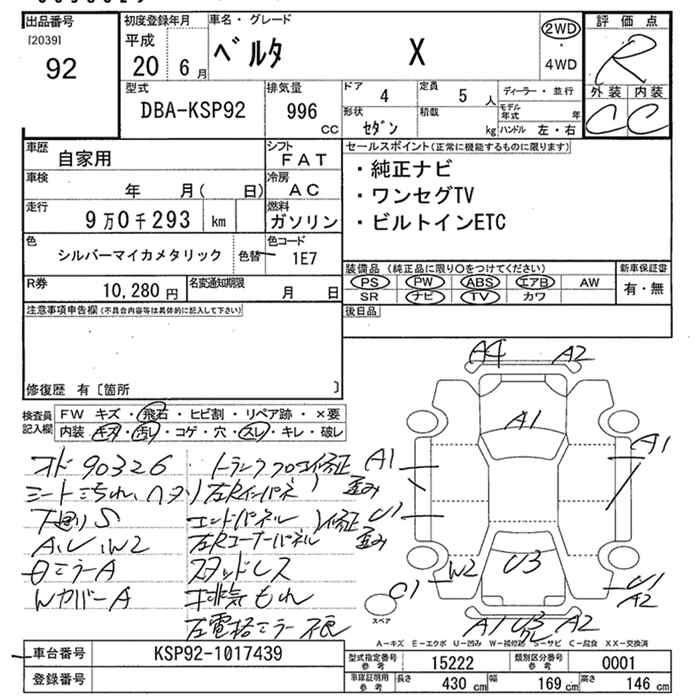 出品番号 初度登録年月 車名・グレード 評価点
[2039] 平成 ベルタ X 2WD R
92 20 6月 ・ 4WD
外装 内装
型式 排気量 ドア 4 定員 5人 ディーラー・並行
DBA-KSP92 996 cc 形状 セダン 積載 kg モデル年式 年
ハンドル 左・右 C C
車歴 自家用 シフト FAT セールスポイント(正常に機能するものに限ります)
車検 年 月( 日) 冷房 AC ・純正ナビ
走行 9万0千293 km 燃料 ガソリン ・ワンセグTV
・ビルトインETC
色 シルバーマイカメタリック 色替 色コード 1E7
装備品(純正品に限り○をつけてください) 新車保証書
R券 10,280円 名変通知期限 月 日 PS PW ABS エアB AW 有・無
SR ナビ TV カワ
注意事項申告欄(不具合内容等は具体的に記入して下さい) 後日品
修復歴 有〔箇所 〕
検査員記入欄 FW キズ・飛石・ヒビ割・リペア跡・×要
内装 キズ・汚れ・コゲ・穴・スレ・キレ・破レ
オド90326 トランクフロア修正
シートよごれ、ヘタリ 左Rインパネ 歪み
下廻りS エンドパネル 修正
A、U、W2 左Rコーナーパネル 歪み
Dミラ-A スタッドレス
Wカバ-A 排気もれ
左電格ミラー不良
A4 A2
A1
A1 A1
U1
W2 U3
C1 U1
A2
スペア A1 U3 A2
A-キズ E-エクボ U-凹み W-補修跡 S-サビ C-腐食 XX-交換済
車台番号 KSP92-1017439 型式指定番号 参考 15222 類別区分番号 参考 0001
登録番号 車庫証明用 参考 長さ 430 cm 幅 169 cm 高さ 146 cm